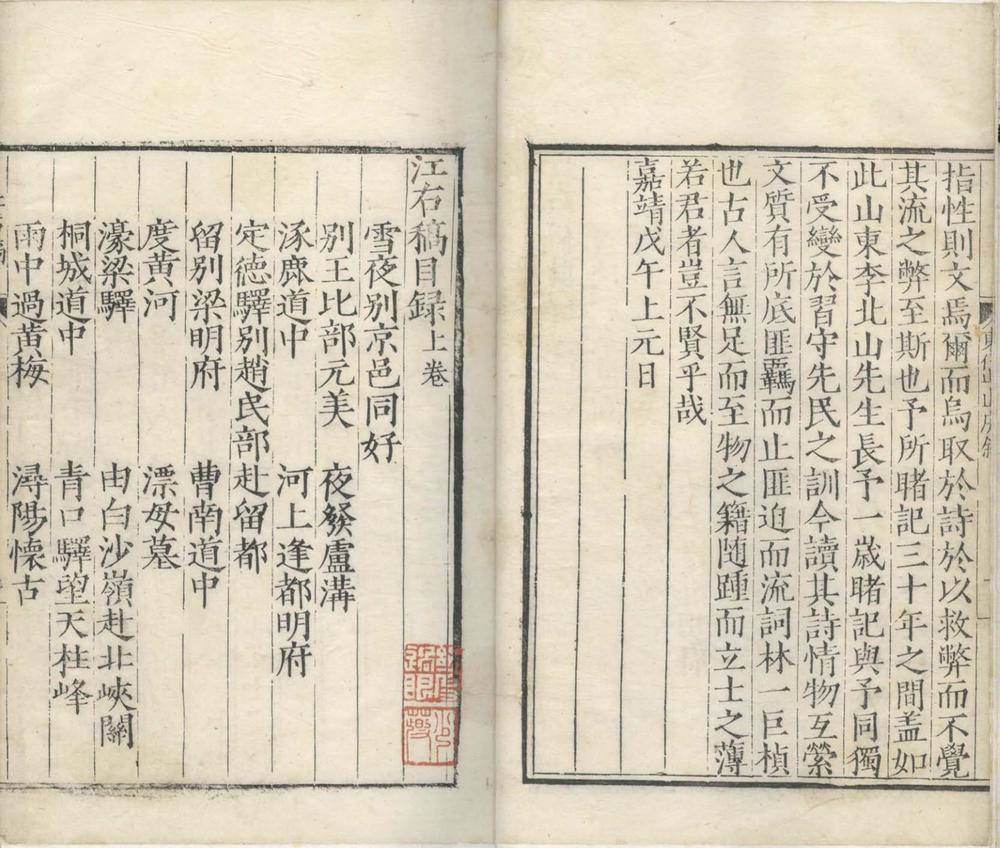 指性則文焉爾而烏取於詩於以救弊而不覺
其流之弊至斯也予所睹記三十年之間盖如
此山東李北山先生長予一歲睹記與予同獨
不受變於習守先民之訓今讀其詩情物互縈
文質有所底匪羈而止匪迫而流詞林一巨楨
也古人言無足而至物之籍随踵而立士之薄
若君者豈不賢乎哉
嘉靖戊午上元日
江右稿目録上卷
雪夜別京邑同好
別王比部元美 夜發盧溝
涿鹿道中 河上逢都明府
定德驛別趙民部赴留都
留別梁明府 曹南道中
度黄河 漂母墓
濠梁驛 由白沙嶺赴北峽關
桐城道中 青口驛望天柱峰
雨中過黄梅 潯陽懷古